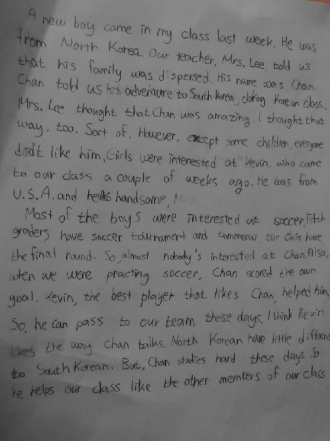 A new boy came in my class last week. He was
from North Korea. Our teacher, Mrs. Lee, told us
that his family was dispersed. His name was Chan.
Chan told us his adventure to South korea, during Korean class.
Mrs. Lee thought that Chan was amazing. I thought that
way, too. Sort of. However, except some children, everyone
didn't like him. Girls were interested at Kevin, who came
to our class a couple of weeks ago. He was from
U.S.A. and handsome,
Most of the boys were interested at soccer. Fifth
graders have soccer tournament and tommorow, our class have
the final round. So, almost nobody's interested at Chan. Also,
when we were practing soccer, Chan scored the own
goal. Kevin, the best player that likes Chan, helped him.
So, he can pass to our team these days. I think Kevin
likes the way Chan talks. North Korean have little different
to South Korean. But, Chan studies hard these days. So
he helps our class like the other members of our class